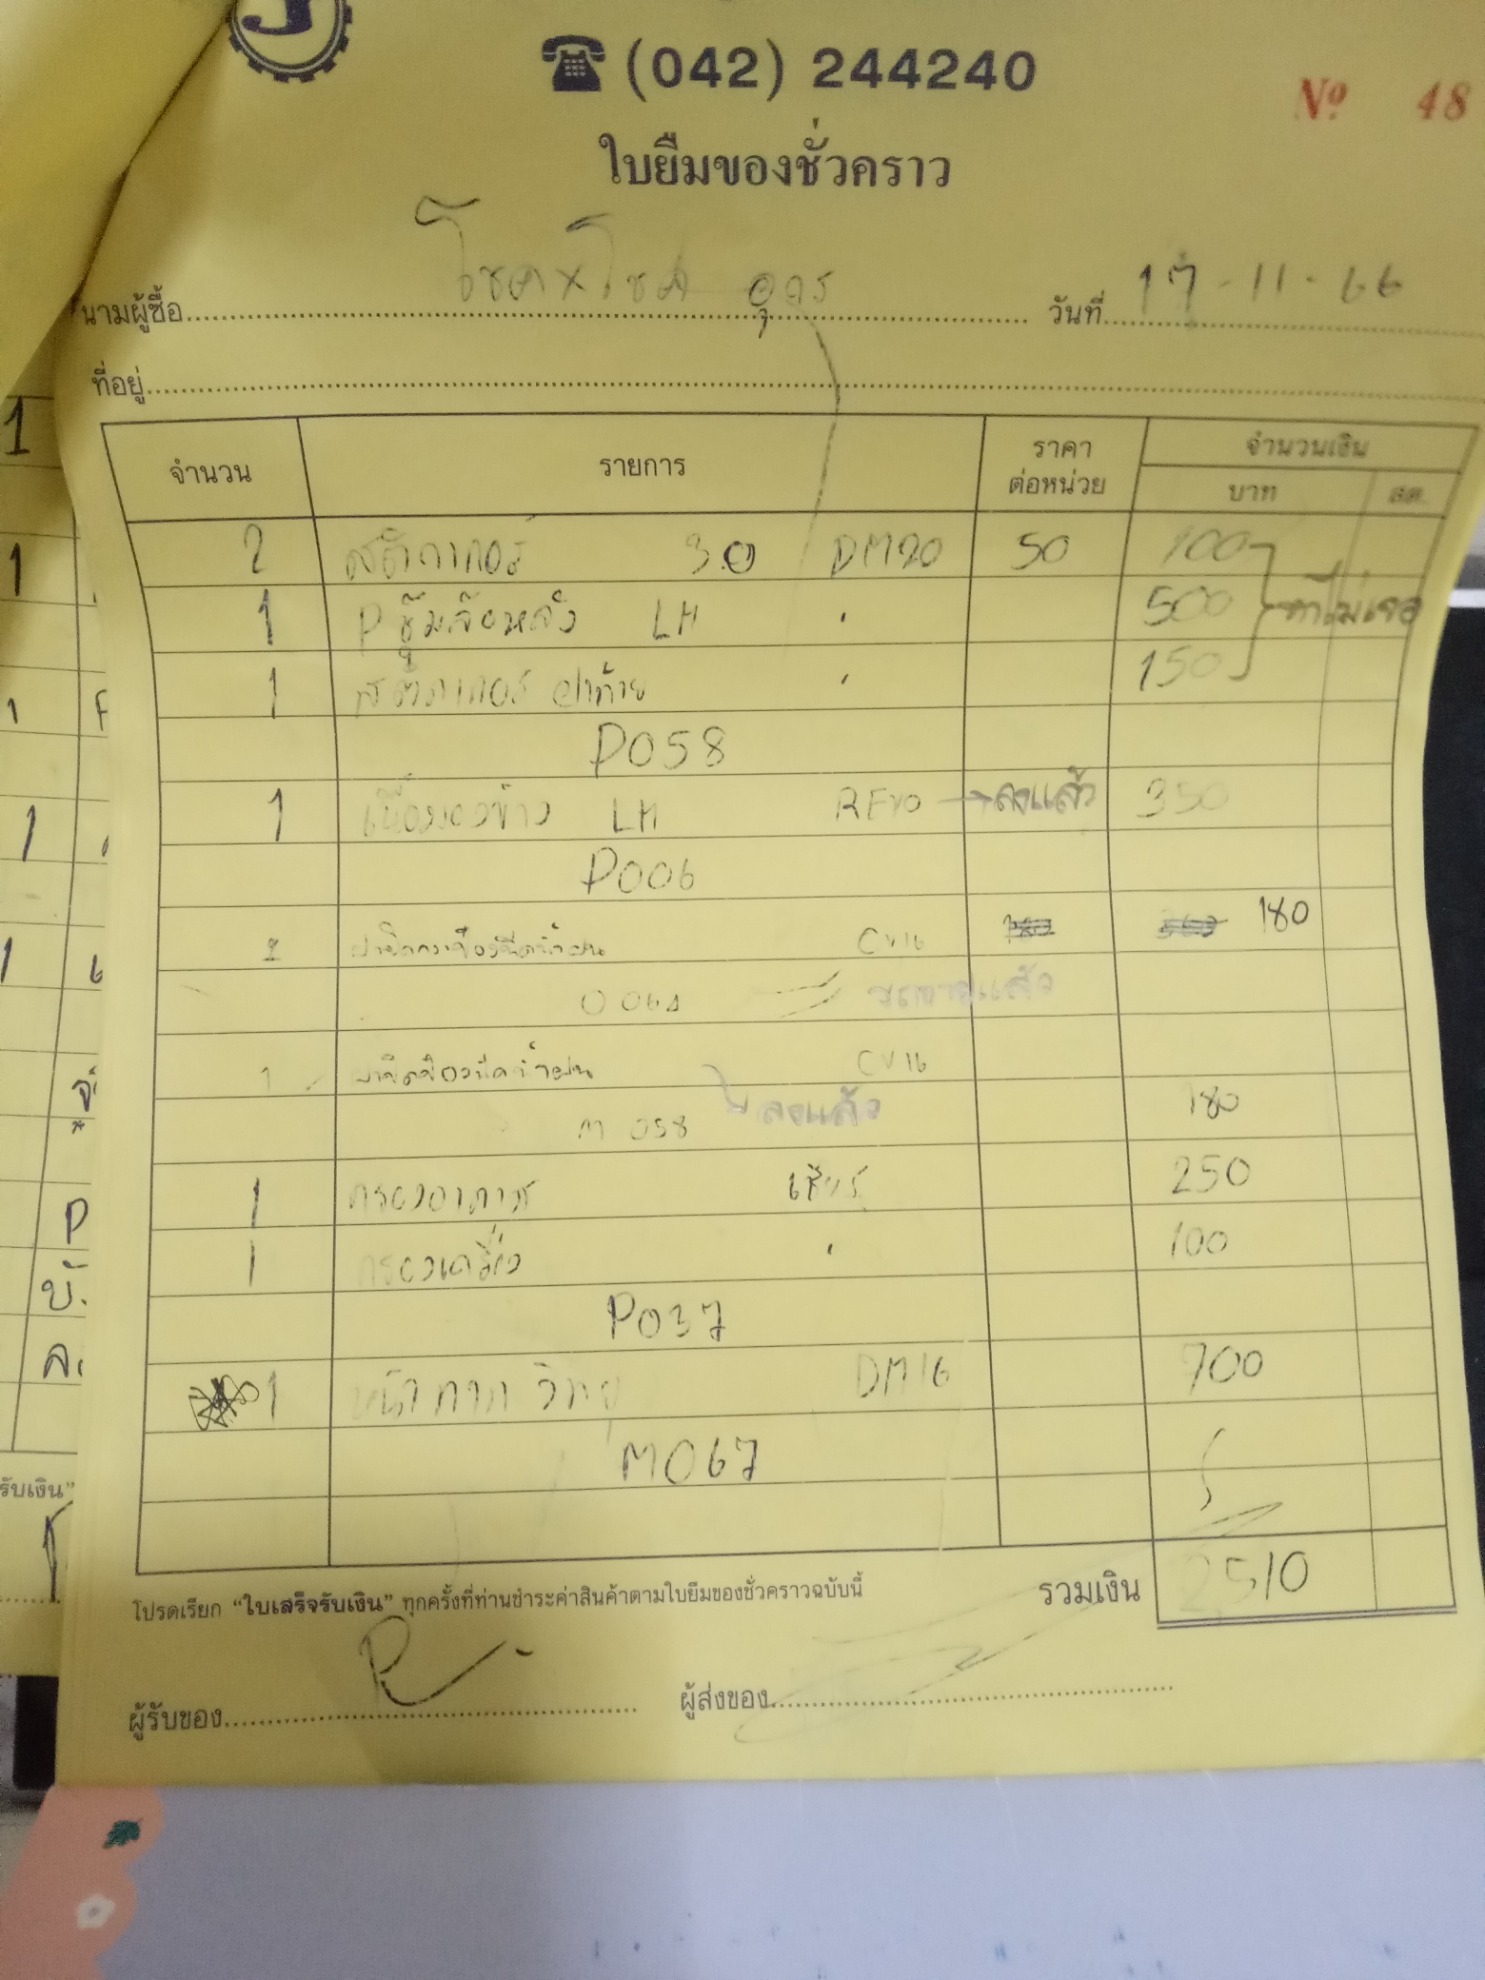 ☎ (042) 244240
Nº 48
ใบยืมของชั่วคราว
นามผู้ซื้อ โชคxโชค อุดร วันที่ 17-11-66
ที่อยู่
จำนวน รายการ ราคาต่อหน่วย จำนวนเงิน
บาท สต.
2 สติกเกอร์ 3.0 DM20 50 100
1 P ซุ้มล้อหลัง LH " 500 หาไม่เจอ
1 สติกเกอร์ ฝาท้าย " 150
P058
1 LH REVO → ลงแล้ว 350
P006
CV16 180
ขายแล้ว
1 CV16
M 058 ลงแล้ว 180
1 กรองอากาศ 250
1 กรองเครื่อง " 100
P037
1 หน้ากาก วิทยุ DM16 700
M067
โปรดเรียก “ใบเสร็จรับเงิน” ทุกครั้งที่ท่านชำระค่าสินค้าตามใบยืมของชั่วคราวฉบับนี้ รวมเงิน 2510
ผู้รับของ ผู้ส่งของ
รับเงิน”